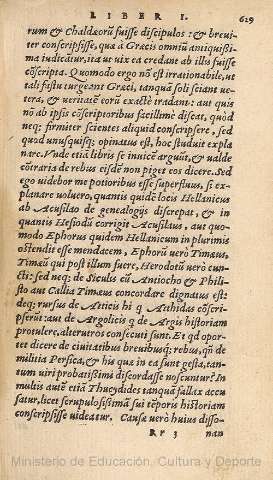 LIBER I. 629
rum & Chaldæorū fuisse discipulos: & breui-
ter conscripsisse, quæ à Græcis omniū antiquissi-
ma iudicātur, ita ut uix ea credant ab illis fuisse
cōscripta. Quomodo ergo nō est irrationabile, ut
tali fastu turgeant Græci, tanquā soli sciant ue-
tera, & ueritatē eorū exactè tradant: aut quis
nō ab ipsis cōscriptoribus facillimè discat, quòd
neq; firmiter scientes aliquid conscripsere, sed
quod unusquisq; opinatus est, hoc studuit expla
nare. Vnde etiā libris se inuicē arguūt, & ualde
cōtraria de rebus eisdē non piget eos dicere. Sed
ego uidebor me potioribus esse superfluus, si ex-
planare uoluero, quantis quidē locis Hellanicus
ab Acusilao de genealogijs discrepat, & in
quantis Hesiodū corrigit Acusilaus, aut quo-
modo Ephorus quidem Hellanicum in plurimis
ostendit esse mendacem, Ephorū uerò Timæus,
Timæū qui post illum fuere, Herodotū uerò cun-
cti: sed neq; de Siculis cū Antiocho & Phili-
sto aut Callia Timæus concordare dignatus est:
deq; rursus de Atticis hi q Athidas cōscri-
pserūt: aut de Argolicis q de Argis historiam
protulere, alterutros consecuti sunt. Et qd opor-
tet dicere de ciuitatibus breuibusq; rebus, qñ de
militia Persica, & his quæ in ea sunt gesta, tan-
tum uiri probatissimi discordasse noscuntur? In
multis autē etiā Thucydides tanquā fallax accu
satur, licet scrupulosissimā sui tēporis historiam
conscripsisse uideatur. Causæ uerò huius disso-
Rr 3 nan
Ministerio de Educación, Cultura y Deporte